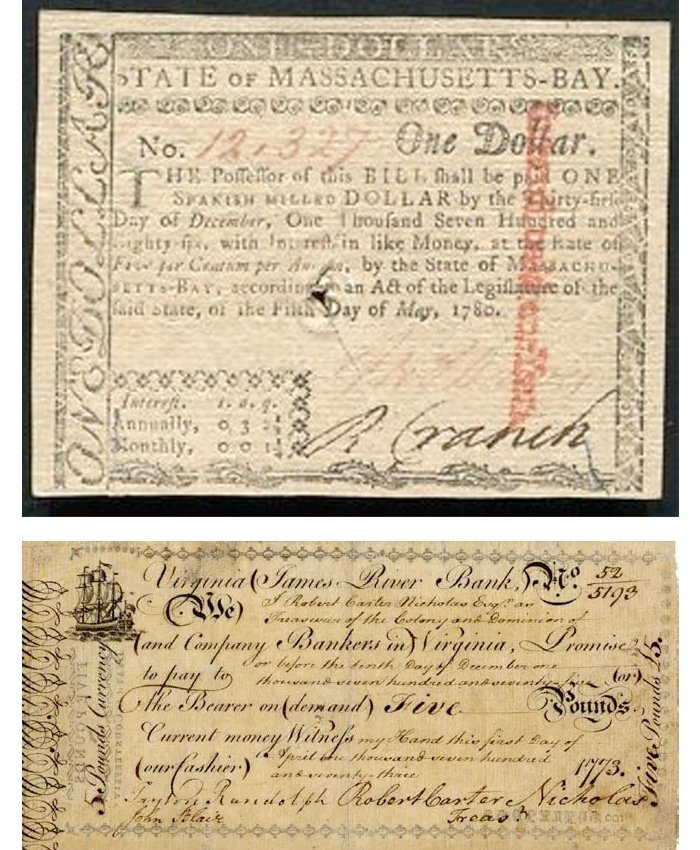 ONE DOLLAR
STATE OF MASSACHUSETTS-BAY.
ONE DOLLAR
No. 12.327 One Dollar.
THE Possessor of this BILL shall be paid ONE
SPANISH MILLED DOLLAR by the Thirty-first
Day of December, One Thousand Seven Hundred and
Eighty-six, with Interest in like Money, at the Rate of
Five per Centum per Annum, by the State of MASSACHU-
SETTS-BAY, according to an Act of the Legislature of the
said State, of the Fifth Day of May, 1780.
Interest. s. d. q.
Annually, 0 3 2½
Monthly, 0 0 1
R Cranch
Virginia (James River Bank,) No. 52
5193
(We) I Robert Carter Nicholas Esqr. as
Treasurer of the Colony and Dominion of
(and Company Bankers in) Virginia, Promise
to pay to or before the tenth Day of December one
thousand seven hundred and seventy five (or)
the Bearer on (demand) Five Pounds
Current money Witness my Hand this first Day of
April one thousand seven hundred
(our Cashier) and seventy-three 1773.
Peyton Randolph Robert Carter Nicholas
John Blair Treasr.
5 Pounds Currency
Five Pounds £5.